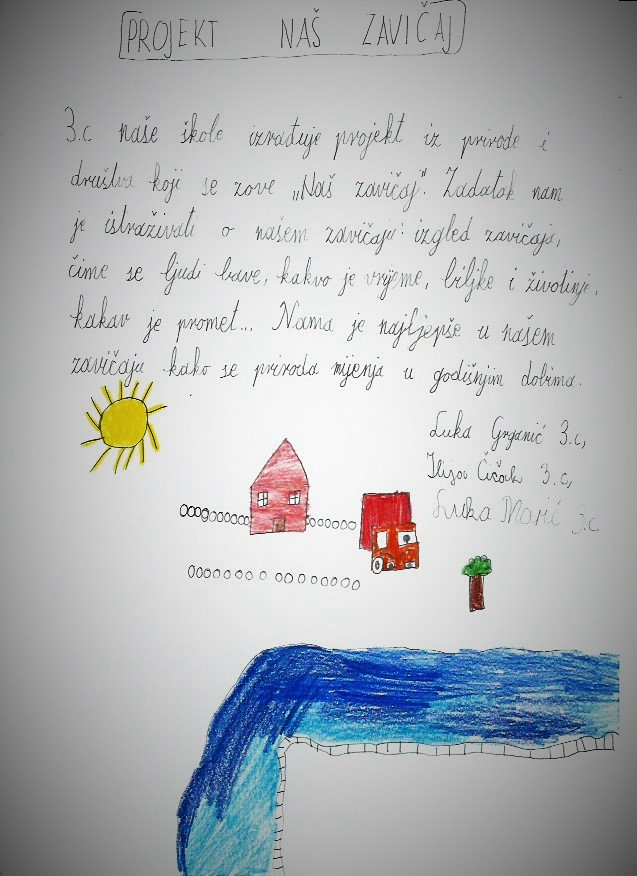 PROJEKT NAŠ ZAVIČAJ
3.c naše škole izrađuje projekt iz prirode i
društva koji se zove „Naš zavičaj". Zadatak nam
je istraživati o našem zavičaju: izgled zavičaja,
čime se ljudi bave, kakvo je vrijeme, biljke i životinje,
kakav je promet... Nama je najljepše u našem
zavičaju kako se priroda mijenja u godišnjim dobima.
Luka Grganić 3.c,
3.c,
Luka Marić 3.c